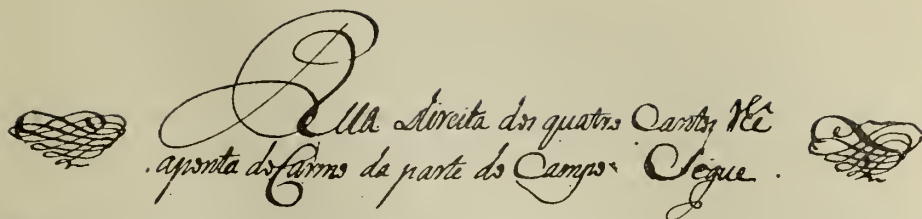 Rua direita dos quatro Cantos thé
aponta do Carmo da parte do Campo. Segue.